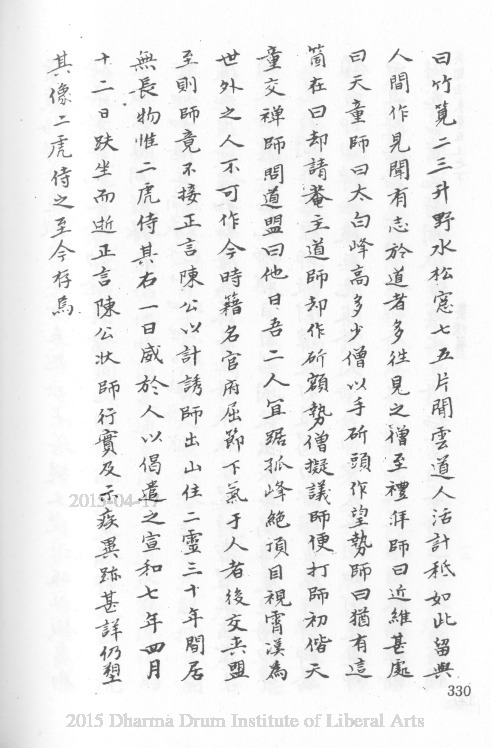 曰竹筧二三升野水松窓七五片閒雲道人活計秖如此留與
人間作見聞有志於道者多徃見之僧至禮拜師曰近離甚處
曰天童師曰太白峰高多少僧以手斫頭作望勢師曰猶有這
箇在曰却請菴主道師却作斫額勢僧擬議師便打師初偕天
童交禪師問道盟曰他日吾二人冝踞孤峰絶頂目視霄漢為
世外之人不可作今時籍名官府屈節下氣于人者後交爽盟
至則師竟不接正言陳公以計誘師出山住二靈三十年間居
無長物惟二虎侍其右一日威於人以偈遣之宣和七年四月
十二日趺坐而逝正言陳公狀師行實及示疾異跡甚詳仍塑
其像二虎侍之至今存焉
330
2015-04-17
2015 Dharma Drum Institute of Liberal Arts